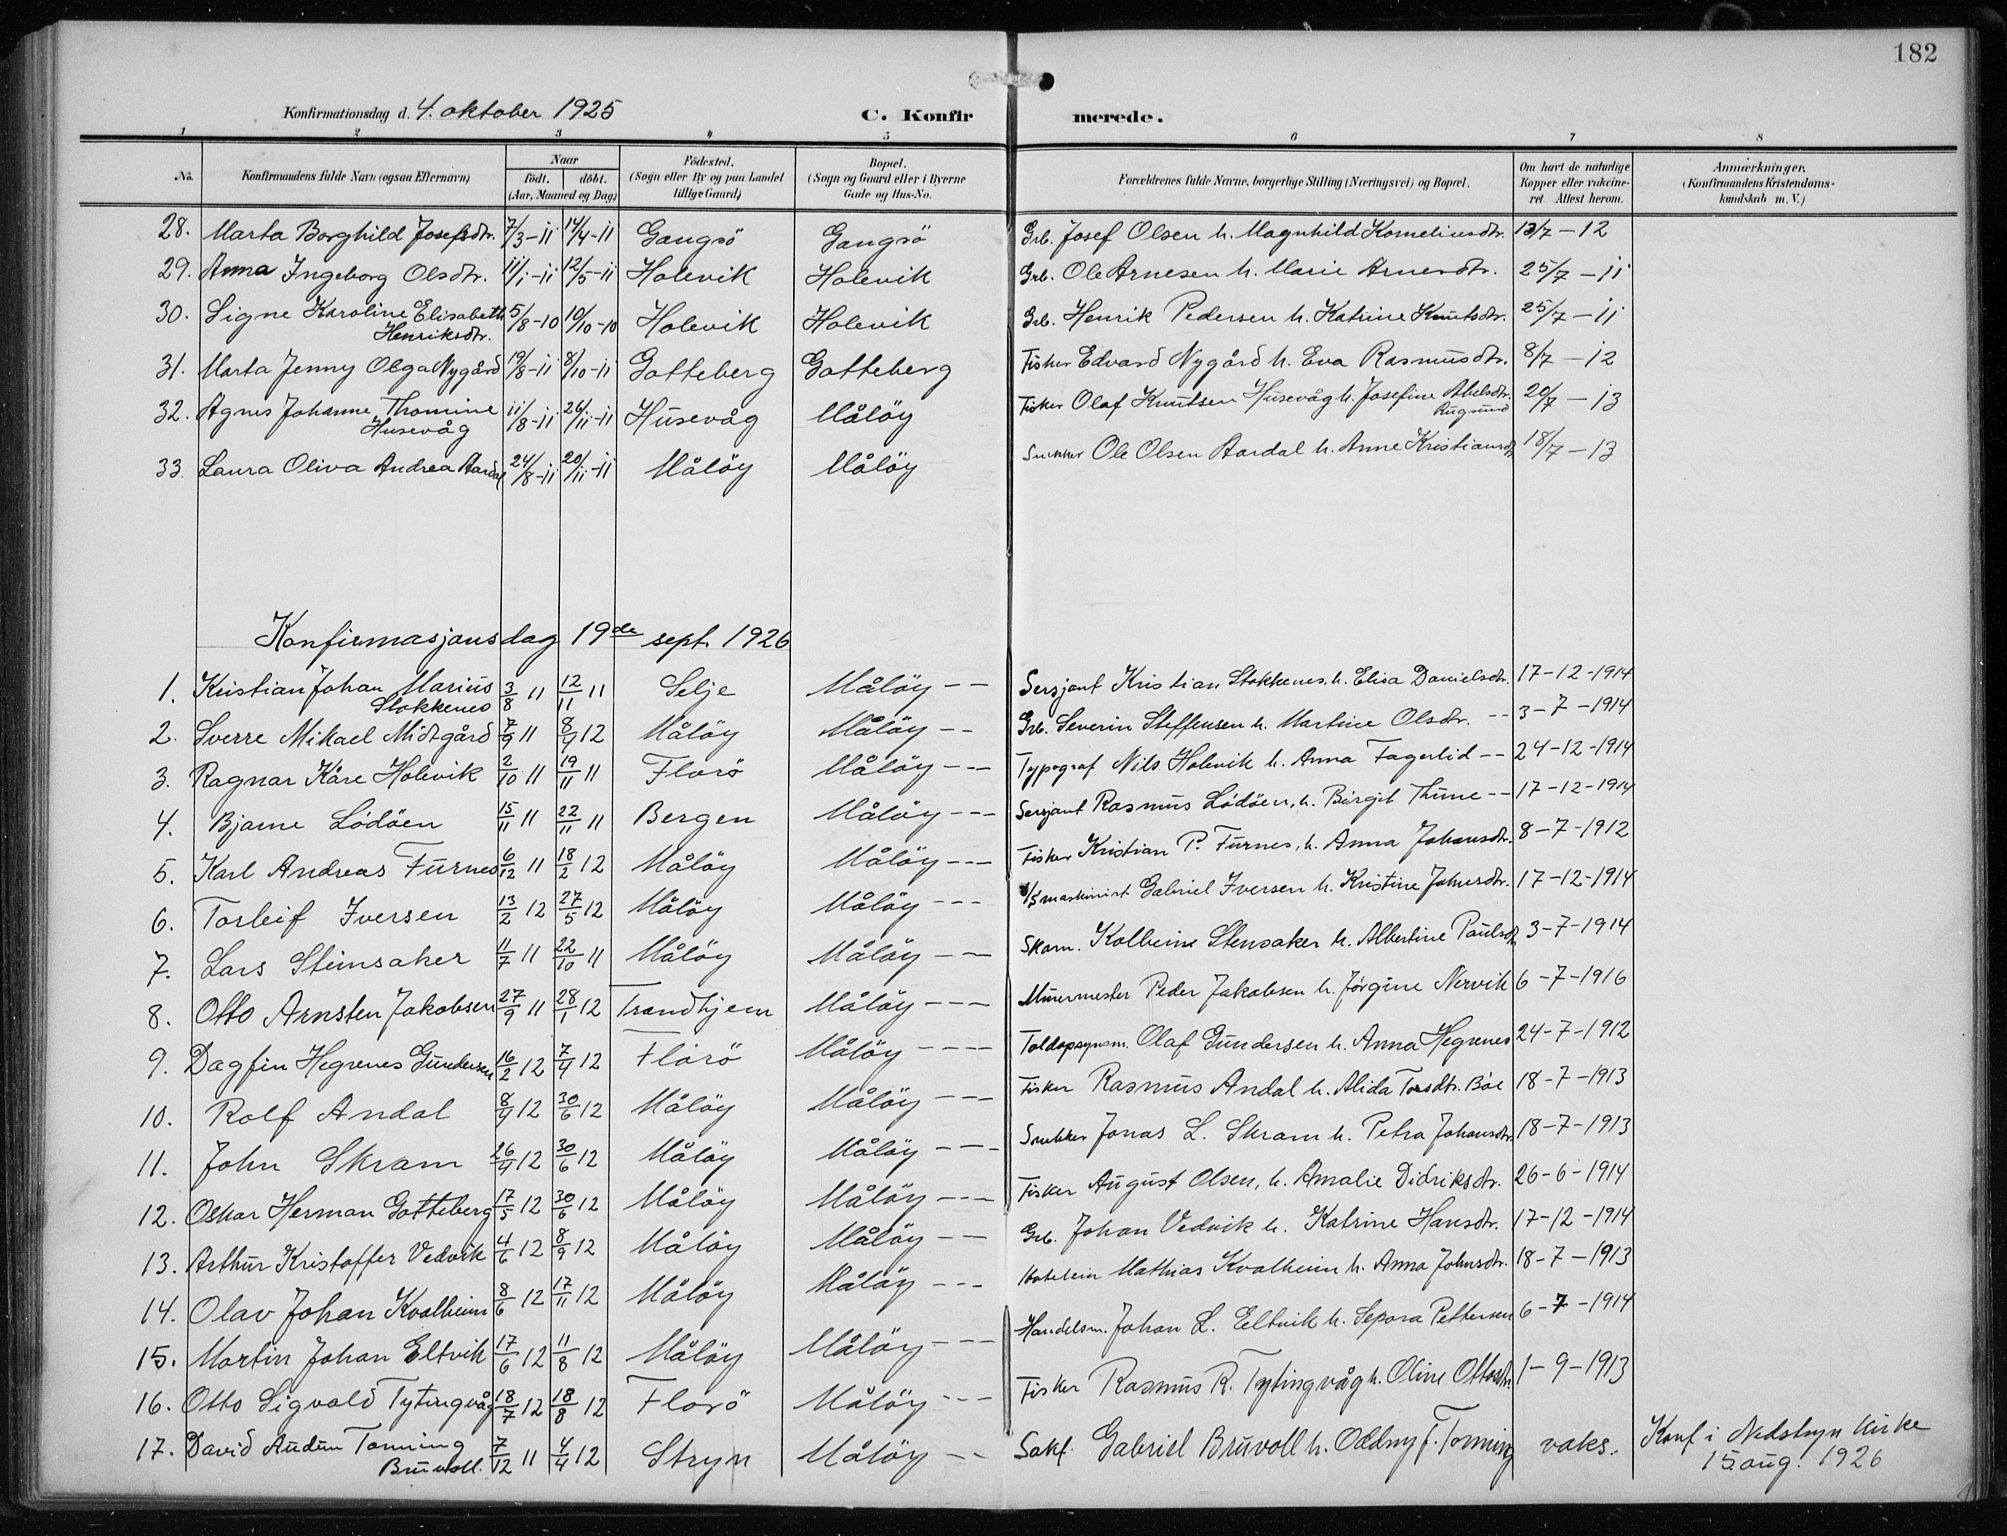 182
Konfirmationsdag d. 4. oktober 1925 C. Konfirmerede.
1 2 3 4 5 6 7 8
No. Konfirmandens fulde Navn (ogsaa Efternavn) Naar födt. döbt. (Aar, Maaned og Dag) Födested. (Sogn eller By og paa Landet tillige Gaard) Bopæl. (Sogn og Gaard eller i Byerne Gade og Hus-No. Forældrenes fulde Navne, borgerlige Stilling (Næringsvei) og Bopæl. Om havt de naturlige Kopper eller vakcineret Attest herom. Anmærkninger, (Konfirmandens Kristendomskundskab m. V.)
28. Marta Borghild Josefsdtr. 7/3-11 14/4-11 Gangsö Gangsö Grb. Josef Olsen h. Magnhild Korneliusdtr. 13/7-12
29. Anna Ingeborg Olsdtr. 11/1-11 12/5-11 Holevik Holevik Grb. Ole Arnesen h. Marie Arnesdtr. 25/7-11
30. Signe Karoline Elisabeth Henriksdtr. 5/8-10 10/10-10 Holevik Holevik Grb. Henrik Pedersen h. Katrine Knutsdtr. 25/7-11
31. Marta Jenny Olga Nygård 19/8-11 8/10-11 Gotteberg Gotteberg Fisker Edvard Nygård h. Eva Rasmusdtr. 8/7-12
32. Agnes Johanne Thomine Husevåg 11/8-11 26/11-11 Husevåg Målöy Fisker Olaf Knutsen Husevåg h. Josefine Abelsdtr. Rugsund 20/7-13
33. Laura Oliva Andrea Aardal 24/8-11 20/11-11 Målöy Målöy Snekker Ole Olsen Aardal h. Anne Kristiansdtr 18/7-13
Konfirmasjonsdag 19de sept. 1926
1. Kristian Johan Marius Stokkenes 3/8 11 12/11 11 Selje Målöy -- Sersjant Kristian Stokkenes, h. Elisa Danielsdtr. 17-12-1914
2. Sverre Mikael Midtgård 7/9 11 8/4 12 Målöy Målöy -- Grb. Severin Steffensen h. Martine Olsdtr. -- 3-7-1914
3. Ragnar Kåre Holevik 2/10 11 19/11 11 Florö Målöy --- Typograf Nils Holevik h. Anna Fagerlid -- 24-12-1914
4. Bjarne Lödöen 15/11 11 22/11 11 Bergen Målöy --- Sersjant Rasmus Lödöen, h. Birgit Thune -- 17-12-1914
5. Karl Andreas Furnes 6/12 11 18/2 12 Målöy Målöy --- Fisker Kristian P. Furnes, h. Anna Johansdtr. 8-7-1912
6. Torleif Iversen 13/2 12 27/5 12 Målöy Målöy --- maskinist Gabriel Iversen h. Kristine Johnsdtr. 17-12-1914
7. Lars Steinsaker 11/7 11 22/10 11 Målöy Målöy -- Skom. Kolbeine Stensaker h. Albertine Paulsdtr 3-7-1914
8. Otto Arnsten Jakobsen 27/9 11 28/1 12 Trondhjem Målöy --- Murermester Peder Jakobsen h. Jörgine Nervik 6-7-1916
9. Dagfin Hegrenes Gundersen 16/2 12 7/4 12 Florö Målöy ---- Toldopsynsm. Olaf Gundersen h. Anna Hegrenes 24-7-1912
10. Rolf Andal 8/4 12 30/6 12 Målöy Målöy --- Fisker Rasmus Andal h. Alida Torsdtr. Böe 18-7-1913
11. John Skram 26/4 12 30/6 12 Målöy Målöy --- Snekker Jonas L. Skram h. Petra Johansdtr. 18-7-1913
12. Oskar Herman Gotteberg 17/5 12 30/6 12 Målöy Målöy --- Fisker August Olsen, h. Amalie Didriksdtr. 26-6-1914
13. Arthur Kristoffer Vedvik 4/6 12 8/9 12 Målöy Målöy -- Grb. Johan Vedvik h. Katrine Hansdtr. 17-12-1914
14. Olav Johan Kvalheim 8/6 12 17/11 12 Målöy Målöy --- Mathias Kvalheim h. Anna Johnsdtr. 18-7-1913
15. Martin Johan Eltvik 17/6 12 11/8 12 Målöy Målöy --- Handelsm. Johan L. Eltvik h. Sepora Pettersen 6-7-1914
16. Otto Sigvald Tytingvåg 18/7 12 18/8 12 Florö Målöy --- Fisker Rasmus R. Tytingvåg h. Oline Ottosdtr. 1-9-1913
17. David Audun Tonning Bruvoll. 7/12 11 4/4 12 Stryn Målöy -- Sakf. Gabriel Bruvoll h. Oddny f. Tonning vaks. Konf i Nedstryn kirke 15. aug. 1926